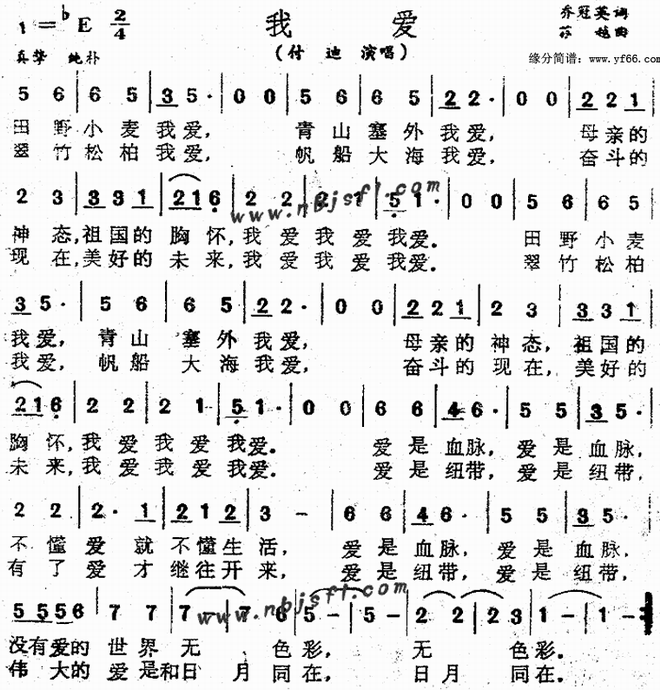 1=♭E 2/4
我 爱
乔冠英词
(付 迪 演唱)
真挚 纯朴
缘分简谱：www.yf66.com
5 6 | 6 5 | 3 5· | 0 0 | 5 6 | 6 5 | 2 2· | 0 0 | 2 2 1 |
田野小麦我爱, 青山塞外我爱, 母亲的
翠竹松柏我爱, 帆船大海我爱, 奋斗的
2 3 | 3 3 1 | 2 1 6 | 2 2 | 2 1 | 5 1· | 0 0 | 5 6 | 6 5 |
www.nbjsfl.com
神态,祖国的胸怀,我爱我爱我爱。 田野小麦
现在,美好的未来,我爱我爱我爱。 翠竹松柏
3 5· | 5 6 | 6 5 | 2 2· | 0 0 | 2 2 1 | 2 3 | 3 3 1 |
我爱, 青山塞外我爱, 母亲的神态, 祖国的
我爱, 帆船大海我爱, 奋斗的现在, 美好的
2 1 6 | 2 2 | 2 1 | 5 1· | 0 0 | 6 6 | 4 6· | 5 5 | 3 5· |
胸怀,我爱我爱我爱。 爱是血脉, 爱是血脉,
未来,我爱我爱我爱。 爱是纽带, 爱是纽带,
2 2 | 2· 1 | 2 1 2 | 3 – | 6 6 | 4 6· | 5 5 | 3 5· |
不懂爱就不懂生活, 爱是血脉, 爱是血脉,
有了爱才继往开来, 爱是纽带, 爱是纽带,
5 5 5 6 | 7 7 | 7 – | 7 6 | 5 – | 5 – | 2 2 | 2 3 | 1 – | 1 – |
www.nbjsfl.com
没有爱的世界无 色彩, 无 色彩.
伟大的爱是和日月同在, 日月同在.